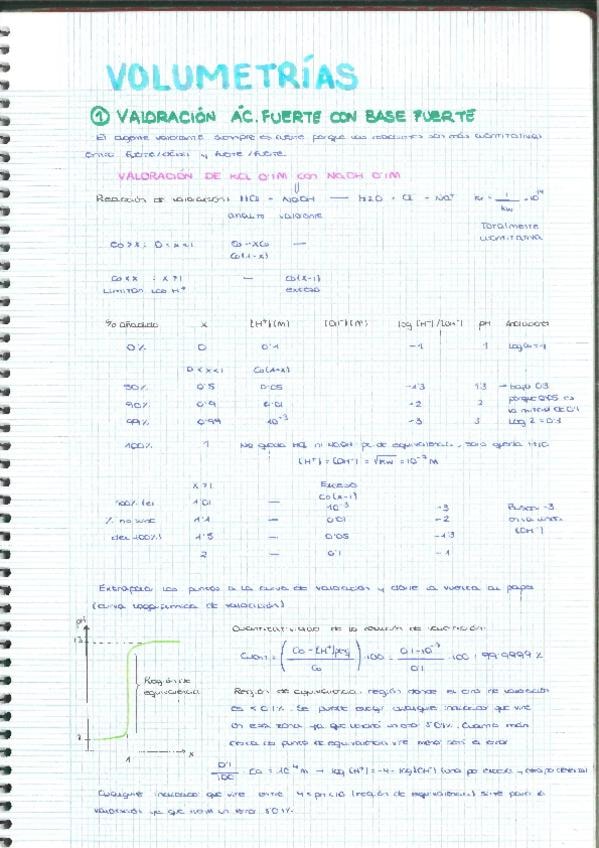 VOLUMETRÍAS
① VALORACIÓN ÁC. FUERTE CON BASE FUERTE
El agente valorante siempre es fuerte porque las reacciones son más cuantitativas
entre fuerte/débil y fuerte/fuerte.
VALORACIÓN DE HCl 0'1M con NaOH 0'1M
Reacción de valoración: HCl + NaOH — H2O + Cl + Na+ K = 1/Kw = 10^14
analito valorante Totalmente cuantitativa
Co > x : 0 < x < 1 Co - xCo —
Co(1-x)
Co < x : x > 1 — Co(x-1)
exceso
% añadido x [H+](M) [OH-](M) log [H+]/[OH-] pH
0% 0 0'1 -1 1 Log Co = -1
0 < x < 1 Co(1-x)
50% 0'5 0'05 -1'3 1'3 → bajo 0'3
90% 0'9 0'01 -2 2 porque 0'05 es
la mitad de 0'1
99% 0'99 10^-3 -3 3 Log 2 = 0'3
100% 1 No queda HCl ni NaOH pe de equivalencia, solo queda H2O
[H+] = [OH-] = √Kw = 10^-7 M
x > 1 Exceso
Co(x-1)
1'01 — 10^-3 -3
1'1 — 0'01 -2
del 100%) 1'5 — 0'05 -1'3 [OH-]
2 — 0'1 -1
Extrapolar los puntos a la curva de valoración y darle la vuelta al papel
(curva logarítmica de valoración)
pH
13
1
1
x
Región de
equivalencia
Cuantitatividad de la reacción de valoración:
Cuant = (Co - [H+]peq / Co) · 100 = 0'1 - 10^-7 / 0'1 · 100 = 99'9999%
Región de equivalencia: región donde el error de valoración
es < 0'1%. Se puede escoger cualquier indicador que vire
en esa zona ya que tendrá un error ≤ 0'1%. Cuanto más
cerca del punto de equivalencia vire menor será el error
0'1/100 · Co = 10^-4 M → log [H+] = -4 = log [OH-] (uno por exceso y otro por defecto)
Cualquier indicador que vire entre 4 ≤ pH ≤ 10 (región de equivalencia) sirve para la
valoración ya que habrá un error ≤ 0'1%.